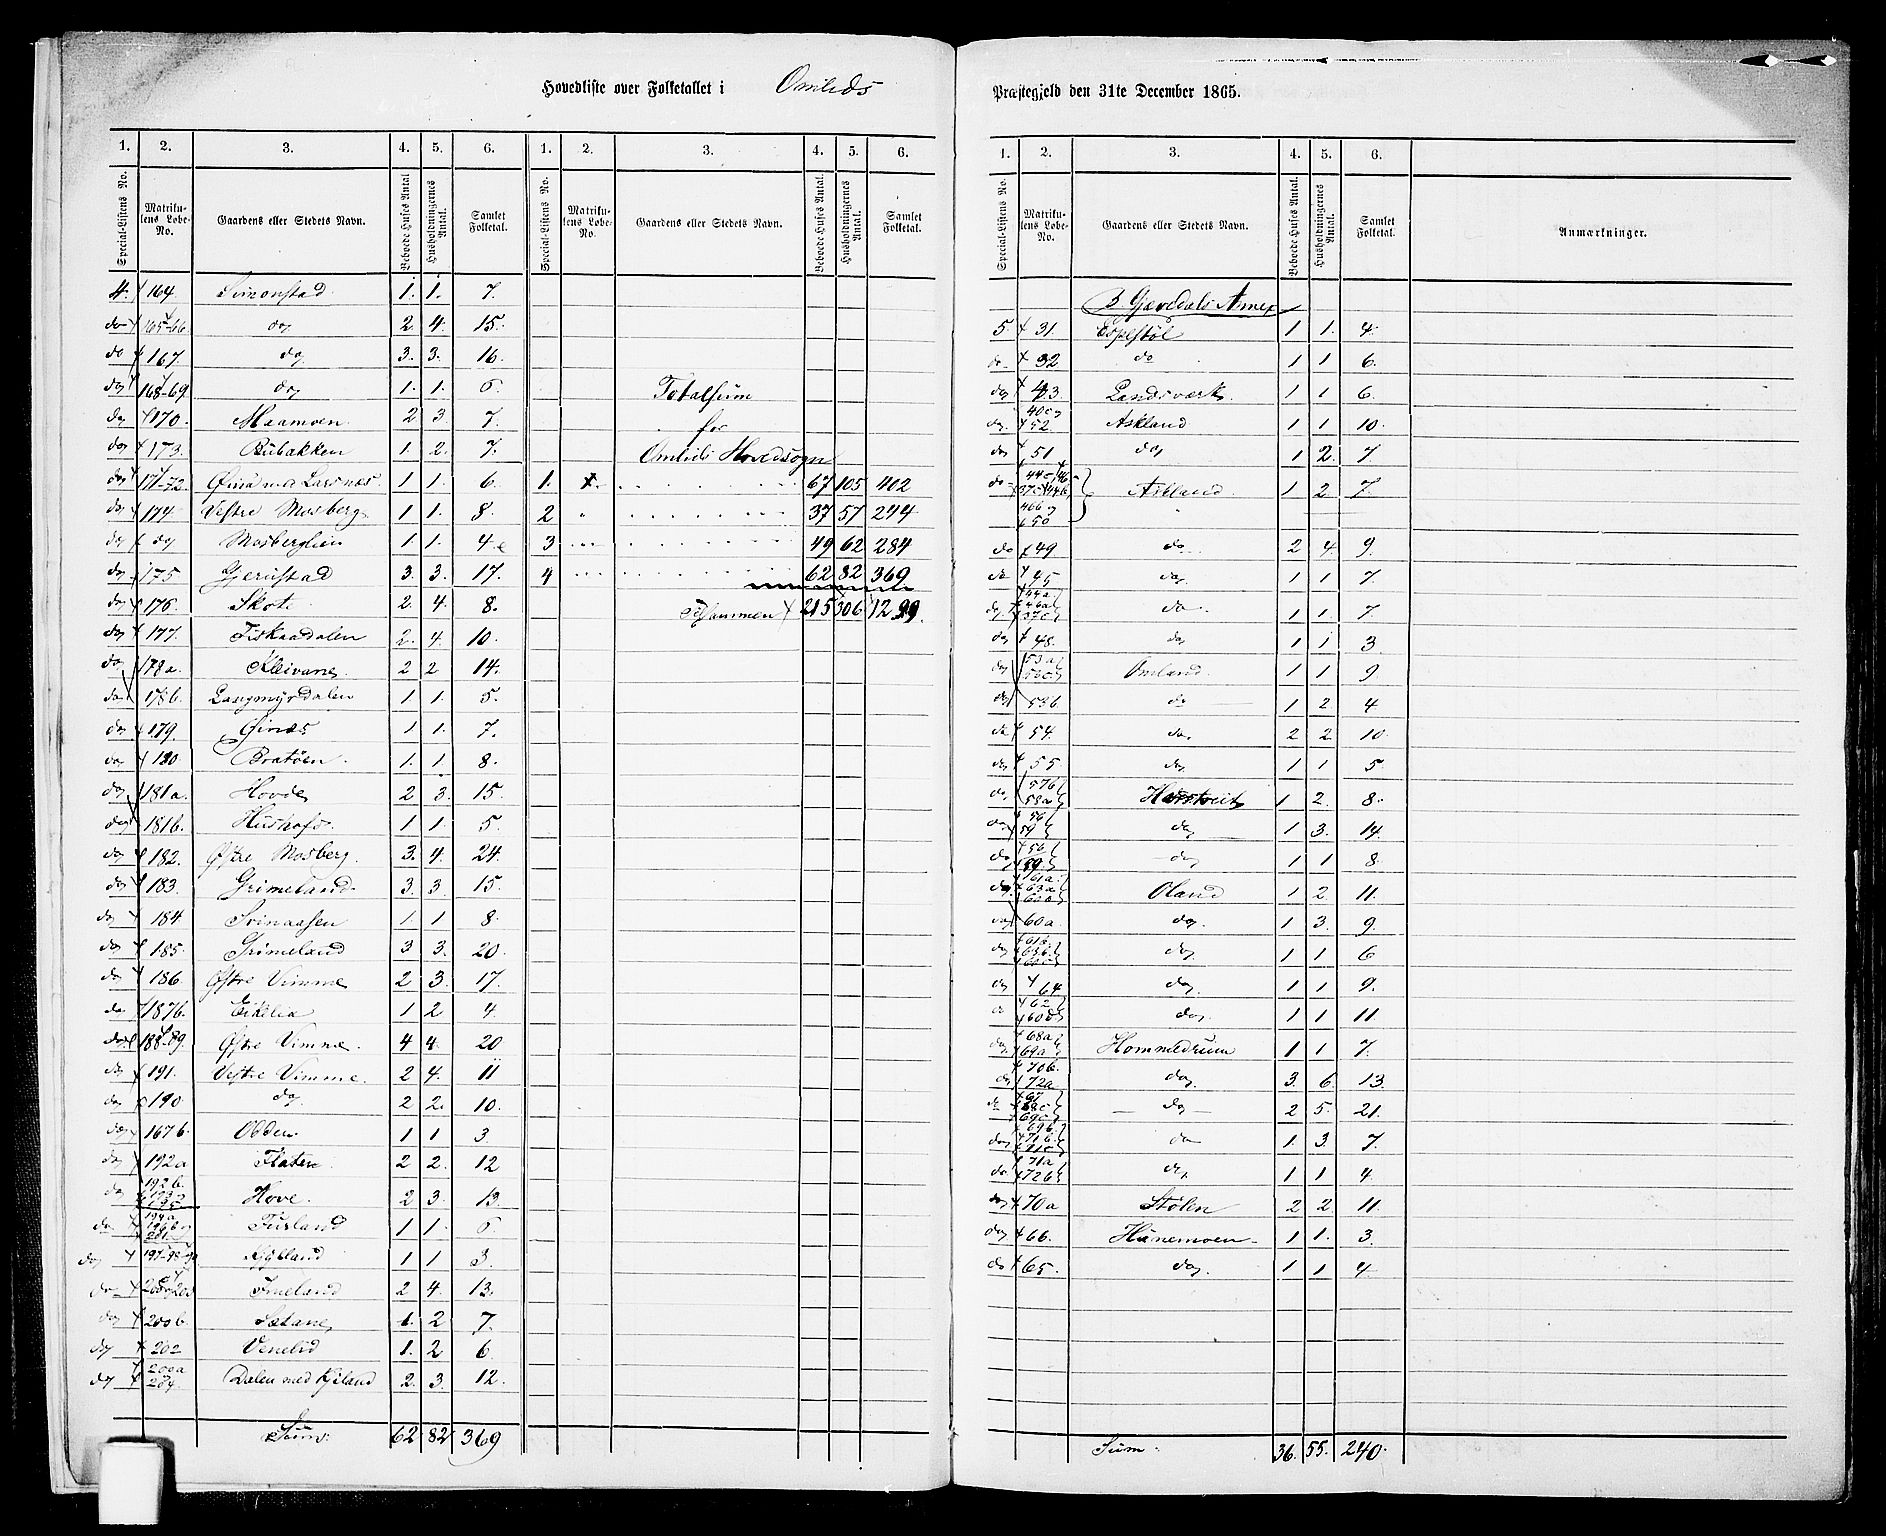 Hovedliste over Folketallet i Omlids Præstegjeld den 31te December 1865.
1. 2. 3. 4. 5. 6. 1. 2. 3. 4. 5. 6.
Special-Listens No. Matrikulens Løbe-No. Gaardens eller Stedets Navn. Beboede Huses Antal. Husholdningernes Antal. Samlet Folketal. Special-Listens No. Matrikulens Løbe-No. Gaardens eller Stedets Navn. Beboede Huses Antal. Husholdningernes Antal. Samlet Folketal.
4. 164 Simonstad 1. 1. 7.
do 165-66 do 2. 4. 15.
do 167. do 3. 3. 16.
do 168-69. do 1. 1. 6. Totalsum
do 170. Maamoen 2 3 7. for
do 173. Bubakken 1. 2. 7. Omlids Hovedsogn
do 171-72. 1 1. 6. 1. 67 105 402
do 174 Vestre Mosberg 1 1. 8. 2 " 37 57 244
do do Mosberglien 1 1. 4. 3 49 62 284
do 175 Gjerustad 3. 3. 17. 4 62 82 369
do 176. Skote 2. 4. 8. Tilsammen 215 306 1299.
do 177. Fiskaadalen 2. 4. 10.
do 178a. Kleivane 2 2 14.
do 178b. Langmyrdalen 1 1. 5.
do 179. Øinæs 1 1. 7.
do 180 Bratøen 1. 1 8.
do 181a. Hovde 2 3. 15.
do 181b. Hushofs. 1 1. 5.
do 182. Østre Mosberg. 3. 4. 24.
do 183. Grimeland 3. 3. 15.
do 184. Svinaasen 1. 1 8.
do 185. Grimeland 3 3. 20.
do 186. Østre Vimme 2 3. 17.
do 187b. Eikelia 1 2 4.
do 188-89. Østre Vimme. 4 4. 20
do 191. Vestre Vimme. 2 4. 11
do 190 do 2 2. 10.
do 167b. Odden 1 1 3.
do 192a Flaten 2 2. 12
do 192b. Hove. 2 3. 13.
do 194a Fusland 1 1. 6
do 197-98 1 1 3
do Fineland 2 4. 13.
do 200b Sætane 1. 2 7.
do 202 Venelid 1. 2 6.
do 200a 204. Dalen med Kjiland 2. 3. 12.
Sum: 62 82 369
1. 2. 3. 4. 5. 6.
Special-Listens No. Matrikulens Løbe-No. Gaardens eller Stedets Navn. Beboede Huses Antal. Husholdningernes Antal. Samlet Folketal. Anmærkninger.
B. Gjøvdals Annex
5. 31. Espestøl 1 1. 4.
do 32 do 1 1 6.
do 43 Landsværk 1 1 6.
do 40c 52. Askland 1 1 10.
do 51 do 1 2. 7.
do 44c 46 37c 44b 50 Askland 1 2 7.
do 49 do 2 4. 9.
do 45 do 1 1 7.
do 44a 46a 37c do 1 1 7.
do 48. do 1 1 3
do 53a 56c Omland 1 1 9
do 53b do 1 2 4
do 54. do 2 2 10
do 55 do 1 1 5
do 57b 58a 1 2. 8.
do 56 59 do 1 3. 14.
do 56 59 do 1 1 8.
do 61a 63a Oland 1 2. 11.
do 60a do 1 3. 9.
do 61b. 63b. do 1 1 6
do 64 do 1 1 9.
do 62 60b do 1 1 11.
do 68a 69a Hommedrum 1 1 7.
do 70b. 72a do 3. 6. 13.
do 67 68c 69c do 2 5. 21.
do 69b. 71b. do 1 3. 7.
do 71a 72b do 1 1 4.
do 70a Stølen 2 2. 11.
do 66. Hunemoen 1 1. 3.
do 65. do 1 1 4.
Sum 36. 55. 240.